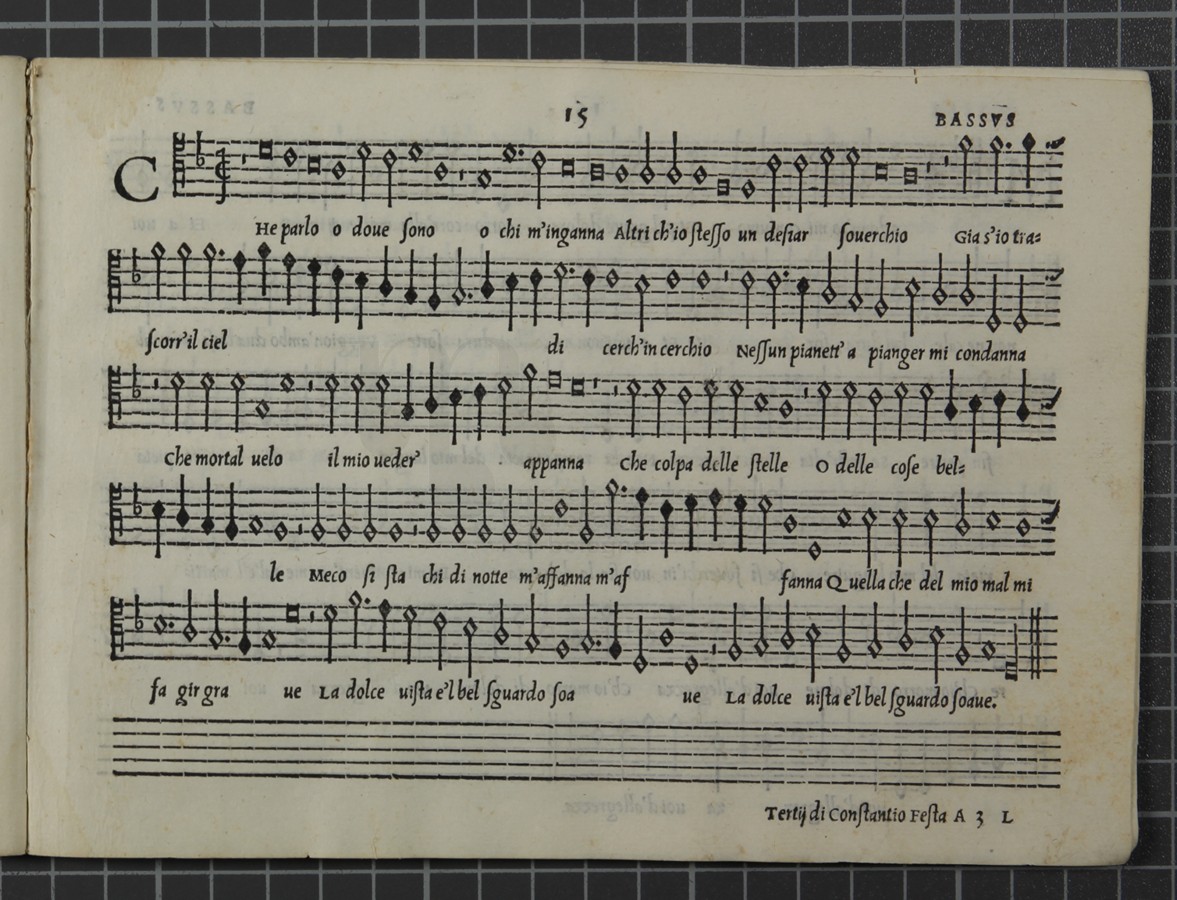 15
BASSVS
CHe parlo o doue sono o chi m'inganna Altri ch'io stesso un desiar souerchio Gia s'io tra=
scorr'il ciel di cerch'in cerchio Nessun pianett' a pianger mi condanna
Che mortal uelo il mio ueder' appanna Che colpa delle stelle O delle cose bel=
le Meco si sta chi di notte m'affanna m'af fanna Quella che del mio mal mi
fa gir gra ue La dolce uista e'l bel sguardo soa ue La dolce uista e'l bel sguardo soaue.
Tertij di Constantio Festa A 3 L